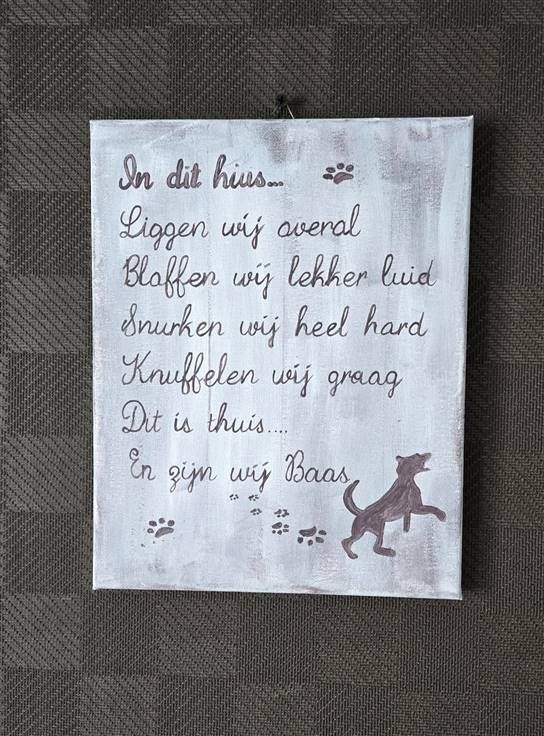 In dit hius...
Liggen wij overal
Blaffen wij lekker luid
Snurken wij heel hard
Knuffelen wij graag
Dit is thuis....
En zijn wij Baas